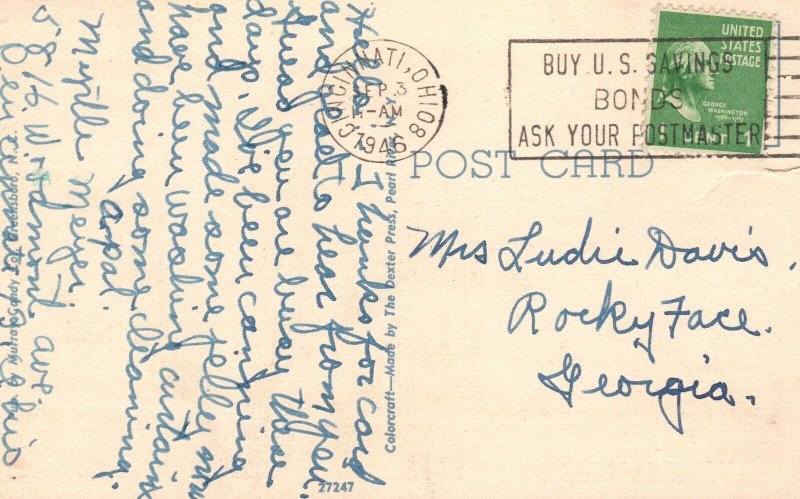 CINCINNATI, OHIO 8
SEP 3
-AM
1946
BUY U.S. SAVINGS
BONDS
ASK YOUR POSTMASTER
UNITED
STATES
POSTAGE
GEORGE
WASHINGTON
POST CARD
Mrs Ludie Davis.
Rocky Face.
Georgia.
Hello. thanks for card
and glad to hear from you.
Guess you are busy these
days. I've been canning
and made some jelly and
have been washing curtains
and doing some cleaning.
a pal.
Myrtle Meyer
Cincinnati
Colorcraft—Made by The Dexter Press, Pearl River, N. Y.
27247